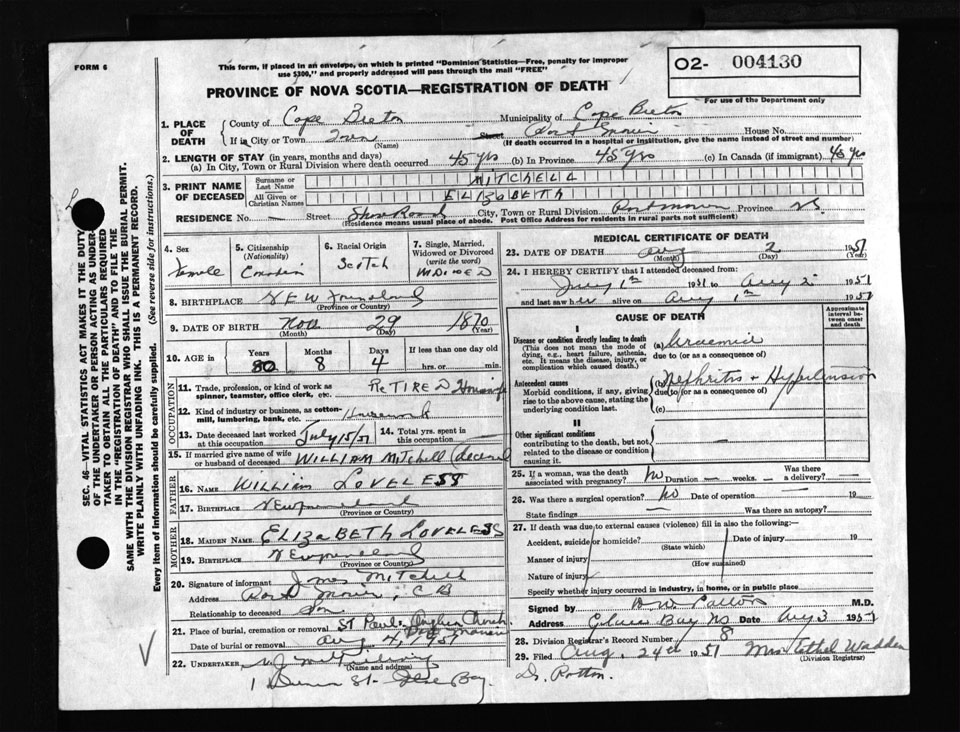 FORM 6
This form, if placed in an envelope, on which is printed "Dominion Statistics—Free, penalty for improper
use $300," and properly addressed will pass through the mail "FREE"
PROVINCE OF NOVA SCOTIA—REGISTRATION OF DEATH
O2- 004130
For use of the Department only
1. PLACE OF DEATH
County of Cape Breton Municipality of Cape Breton
If in City or Town Town Street Port Morien House No.
(Name) (If death occurred in a hospital or institution, give the name instead of street and number)
2. LENGTH OF STAY (in years, months and days)
(a) In City, Town or Rural Division where death occurred 45 yrs (b) In Province 45 yrs (c) In Canada (if immigrant) 45 yrs
3. PRINT NAME OF DECEASED
Surname or Last Name MITCHELL
All Given or Christian Names ELIZABETH
RESIDENCE No. — Street Shore Road City, Town or Rural Division Port Morien Province NS
(Residence means usual place of abode. Post Office Address for residents in rural parts not sufficient)
4. Sex Female
5. Citizenship (Nationality) Canadian
6. Racial Origin Scotch
7. Single, Married, Widowed or Divorced (write the word) WIDOWED
8. BIRTHPLACE NEW Foundland
(Province or Country)
9. DATE OF BIRTH Nov 29 1870
(Month) (Day) (Year)
10. AGE in Years 80 Months 8 Days 4 If less than one day old
hrs. or min.
OCCUPATION
11. Trade, profession, or kind of work as spinner, teamster, office clerk, etc. RETIRED Housewife
12. Kind of industry or business, as cotton-mill, lumbering, bank, etc. Housework
13. Date deceased last worked at this occupation July 15/51
14. Total yrs. spent in this occupation —
15. If married give name of wife or husband of deceased WILLIAM MITCHELL (deceased)
FATHER
16. Name WILLIAM LOVELESS
17. BIRTHPLACE NEWfoundland
(Province or Country)
MOTHER
18. MAIDEN NAME ELIZABETH LOVELESS
19. BIRTHPLACE NEWfoundland
(Province or Country)
20. Signature of informant James Mitchell
Address Port Morien, C B
Relationship to deceased Son
21. Place of burial, cremation or removal ST Pauls Anglican Church Port Morien
Date of burial or removal Aug 4, 1951
22. UNDERTAKER
(Name and address)
St- Glace Bay.
MEDICAL CERTIFICATE OF DEATH
23. DATE OF DEATH Aug 2 1951
(Month) (Day) (Year)
24. I HEREBY CERTIFY that I attended deceased from
July 1st 1951 to Aug 2 1951
and last saw her alive on Aug 1st 1951
CAUSE OF DEATH
Approximate interval between onset and death
I
Disease or condition directly leading to death
(This does not mean the mode of dying, e.g., heart failure, asthenia, etc. It means the disease, injury, or complication which caused death.)
(a) Uraemia
due to (or as a consequence of)
Antecedent causes
Morbid conditions, if any, giving rise to the above cause, stating the underlying condition last.
(b) Nephritis + Hypertension
due to (or as a consequence of)
(c)
II
Other significant conditions
contributing to the death, but not related to the disease or condition causing it.
—
25. If a woman, was the death associated with pregnancy? No Duration — weeks. Was there a delivery? —
26. Was there a surgical operation? No Date of operation — 19
State findings — Was there an autopsy?
27. If death was due to external causes (violence) fill in also the following:—
Accident, suicide or homicide? Date of injury 19
(State which)
Manner of injury
(How sustained)
Nature of injury
Specify whether injury occurred in industry, in home, or in public place
Signed by M.D.
Address Glace Bay NS Date Aug 3 1951
28. Division Registrar's Record Number 8
29. Filed Aug. 24th 1951 Mrs Ethel Wadden
(Division Registrar)
SEC. 46—VITAL STATISTICS ACT MAKES IT THE DUTY
OF THE UNDERTAKER OR PERSON ACTING AS UNDER-
TAKER TO OBTAIN ALL THE PARTICULARS REQUIRED
IN THE "REGISTRATION OF DEATH" AND TO FILE THE
SAME WITH THE DIVISION REGISTRAR WHO SHALL ISSUE THE BURIAL PERMIT.
WRITE PLAINLY WITH UNFADING INK. THIS IS A PERMANENT RECORD.
Every item of information should be carefully supplied. (See reverse side for instructions.)